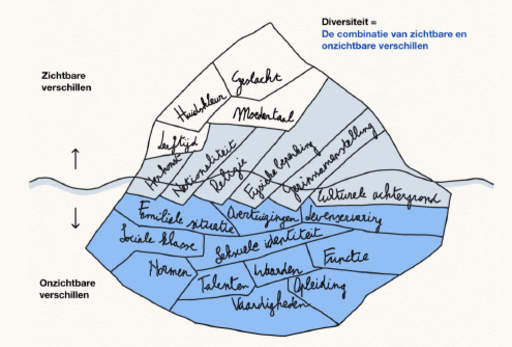 Diversiteit =
De combinatie van zichtbare en
onzichtbare verschillen
Zichtbare
verschillen
Geslacht
Huidskleur
Moedertaal
Leeftijd
Herkomst
Nationaliteit
Religie
Fysieke beperking
Gezinsamenstelling
Culturele achtergrond
Familiale situatie
Overtuigingen
Levenservaring
Sociale klasse
Seksuele identiteit
Functie
Normen
Waarden
Talenten
Opleiding
Vaardigheden
Onzichtbare
verschillen